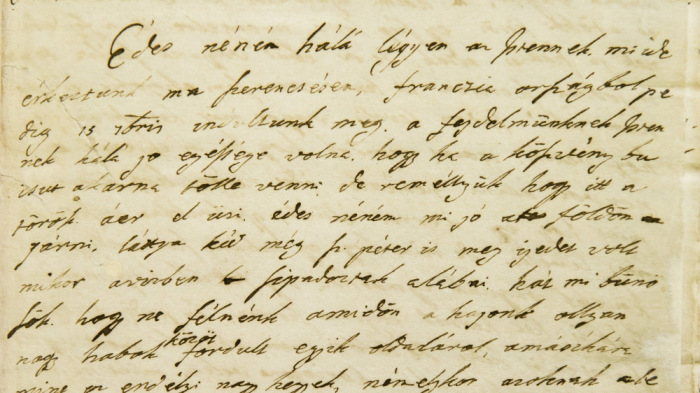 Édes néném hálá légyen az Istennek, mi ide
érkeztünk ma szerencsésen, franczia országbol pe
dig 15 7bris indultunk meg. a fejdelmünknek Isten
nek hálá jo egéssége volna. hogy ha a köszvény bu
csut akarna tölle venni. de reméllyük hogy itt a
török áer el üzi. édes néném mi jó a földön
járni. láttya kéd még sz. péter is meg ijedt volt
mikor a vizben sipadoztak alábai. hát mi bünö
sök hogy ne félnénk amidön a hajonk ollyan
nagy habok között fordult egyik oldaláról, amásikára
mint az erdélyi nagy hegyek, némelykor azoknak a te